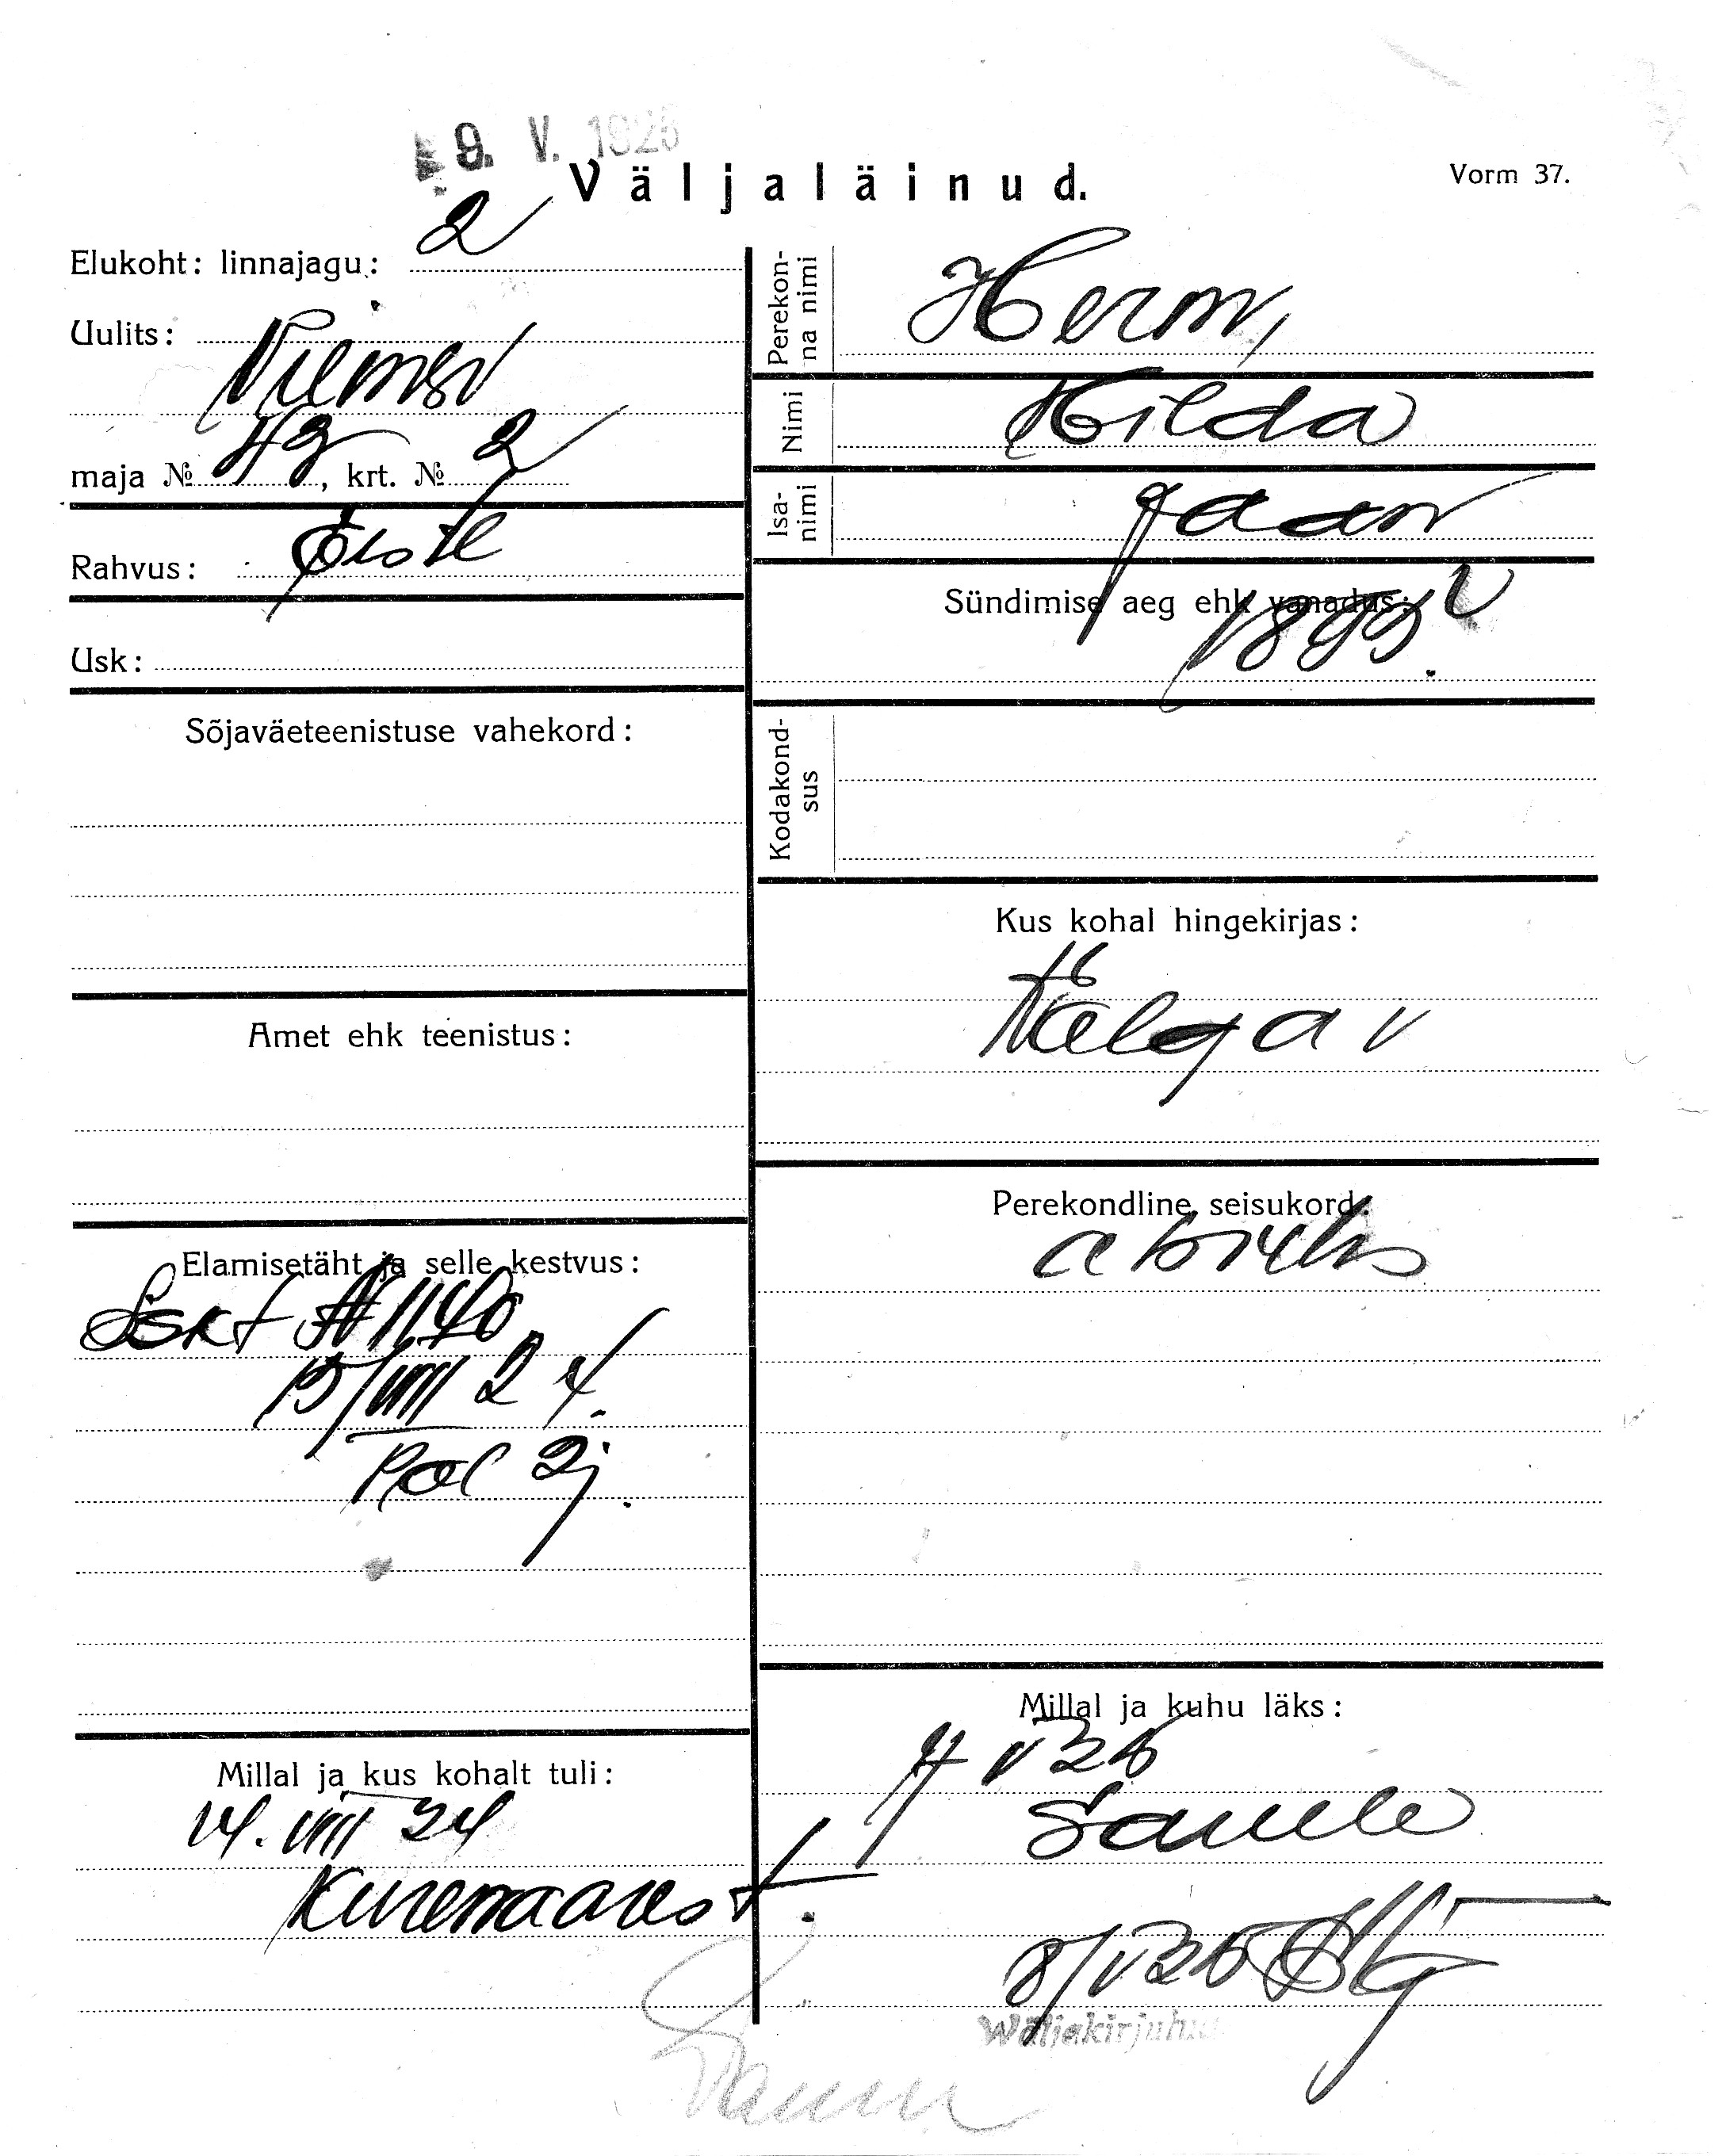 9. V. 1925
Väljaläinud.
Vorm 37.
Elukoht: linnajagu: 2
Uulits:
maja № 42, krt. № 2
Rahvus: Eesti
Usk:
Sõjaväeteenistuse vahekord:
Amet ehk teenistus:
Elamisetäht ja selle kestvus:
№ 1140
15/VIII 24.
Pol 2j.
Millal ja kus kohalt tuli:
14. VIII 24
Kuremaarest.
Perekon-
na nimi
Herm,
Nimi
Hilda
Isa-
nimi
Jaan
Sündimise aeg ehk vanadus:
1899.
Kodakond-
sus
Kus kohal hingekirjas:
Perekondline seisukord:
abielus
Millal ja kuhu läks:
V 25
8/V 25
Wäljakirjutu